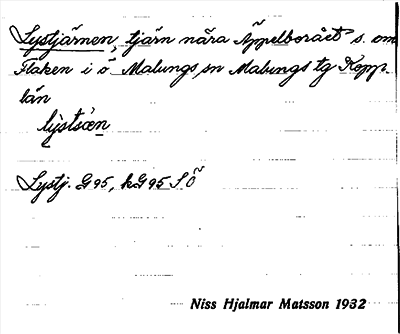 Lystjärnen, tjärn nära Äppelboråët s. om
Flaken i ö. Malungs sn Malungs tg Kopp.
län
lỳstsæ̀n
Lystj. G95, kG95 SÖ
Niss Hjalmar Matsson 1932